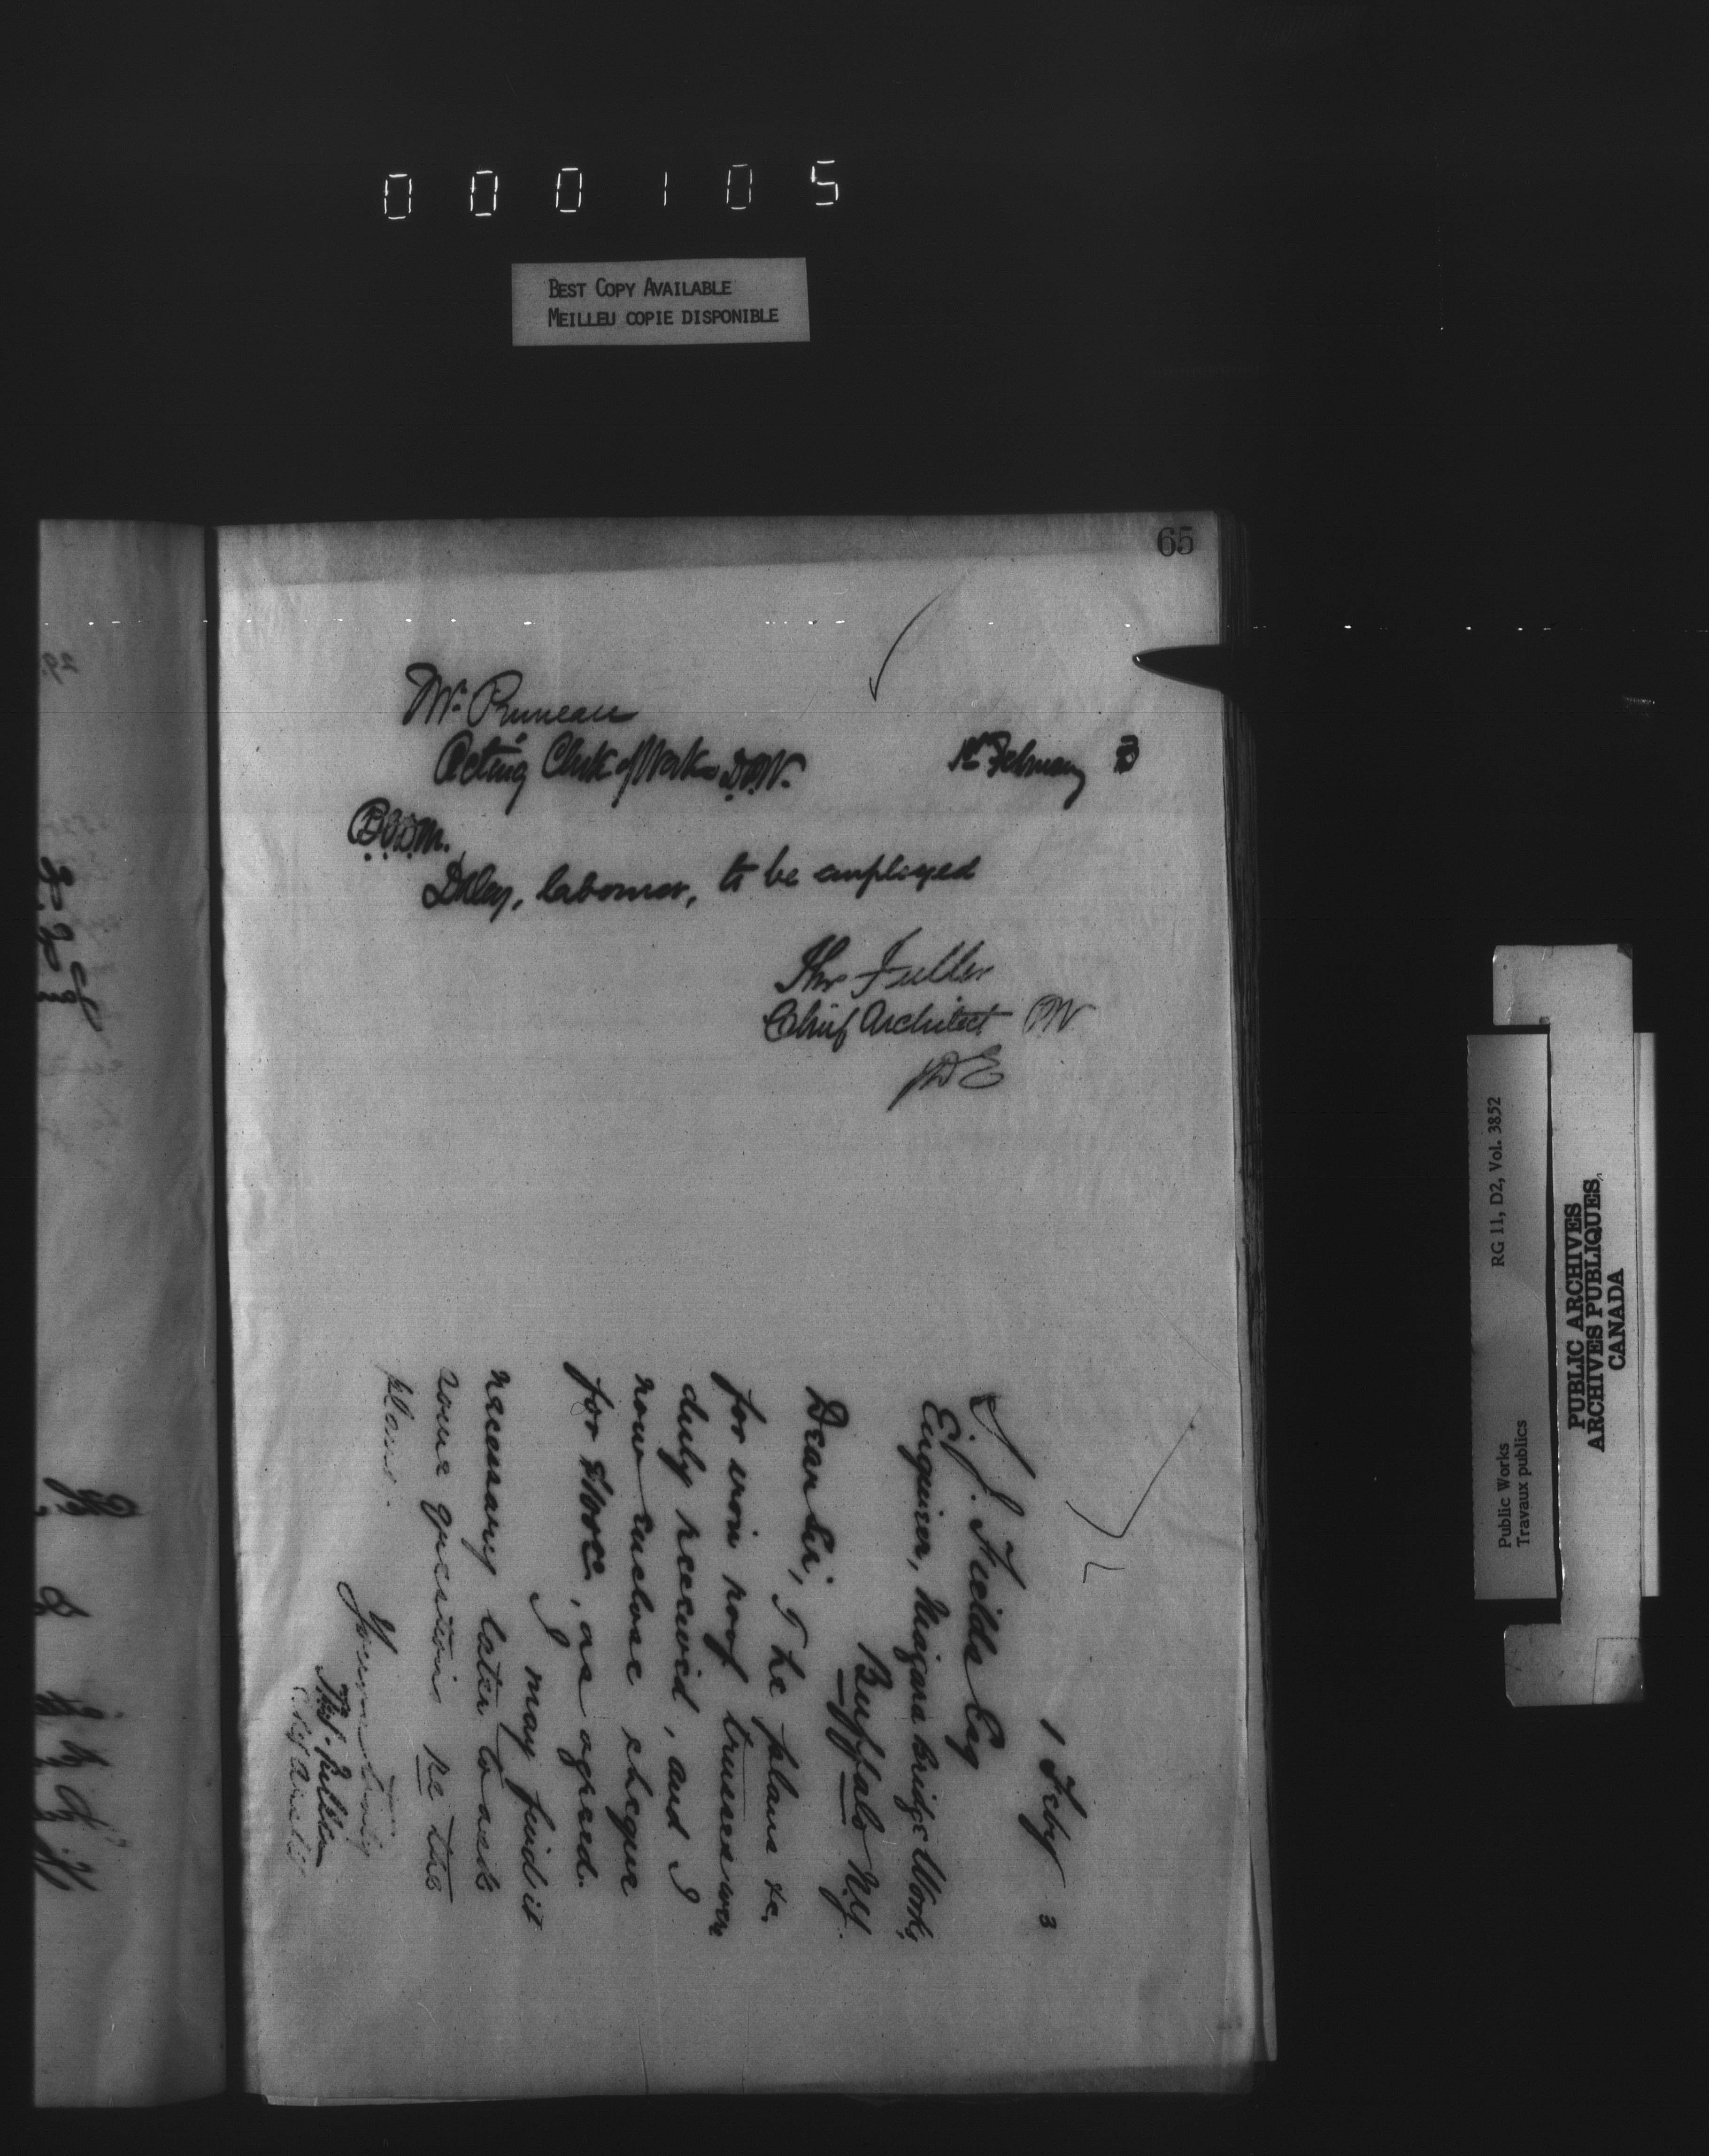 000105
BEST COPY AVAILABLE
MEILLEU COPIE DISPONIBLE
65
Mr. Pruneau
Acting Clerk of Works D.P.W.
1st February 3
Daley, labourer, to be employed
Thos Fuller
Chief Architect PW
JDE
1 Feby 3
Fields Esq
Engineer, Niagara Bridge Works,
Buffalo N.Y.
Dear Sir, The plans &c.
for iron roof trusses were
duly received, and I
now enclose cheque
for as agreed.
I may find it
necessary later to ask
some questions re the
plans.
Yours truly
Thos. Fuller
RG 11, D2, Vol. 3852
Public Works
Travaux publics
PUBLIC ARCHIVES
ARCHIVES PUBLIQUES
CANADA